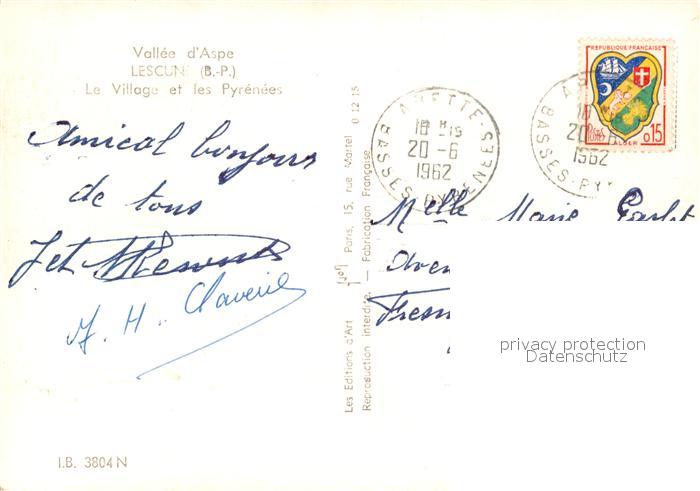 Vallée d'Aspe
LESCUN (B.-P.)
Le Village et les Pyrénées
Amical bonjour
de tous
J. H. Claverie
I.B. 3804 N
Les Editions d'Art "Jon" Paris, 15, rue Martel 0 12 15
Reproduction interdite. — Fabrication Française
ARETTE
18 H 15
20-6
1962
BASSES-PYRENEES
A
18
20
1962
BASSES-PY
REPUBLIQUE FRANÇAISE
POSTES
0,15
ALGER
Melle Marie
Aven
Fresn
privacy protection
Datenschutz